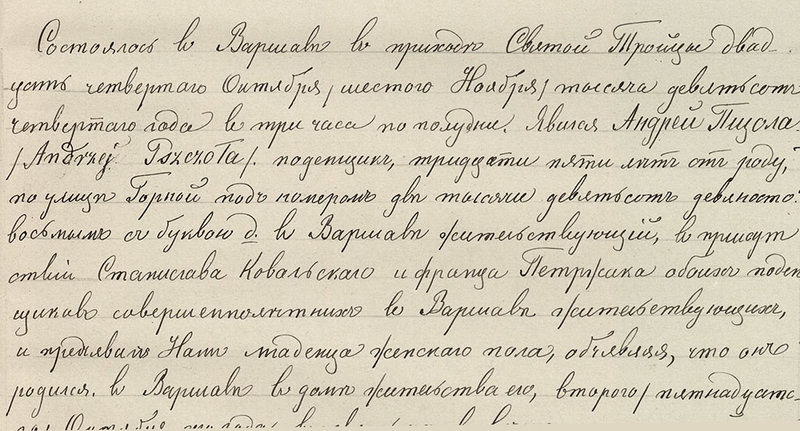 Состоялось въ Варшавѣ въ приходѣ Святой Тройцы двад-
цать четвертаго Октября /шестого Ноября/ тысяча девятьсотъ
четвертаго года въ три часа по полудни. Явился Андрей Пщола
/Andrzej Pszczoła/. поденщикъ, тридцати пяти лѣтъ отъ роду,
по улицѣ Горной подъ номеромъ двѣ тысячи девятьсотъ девяносто
восьмымъ съ буквою д. въ Варшавѣ жительствующій, въ присут
ствіи Станислава Ковальскаго и Франца Петржика обоихъ поден
щиковъ совершеннолѣтнихъ въ Варшавѣ жительствующихъ,
и предъявилъ Намъ младенца женскаго пола, объявляя, что онъ
родился. въ Варшавѣ въ домѣ жительства его, второго/ пятнадцат-
го/ Октября